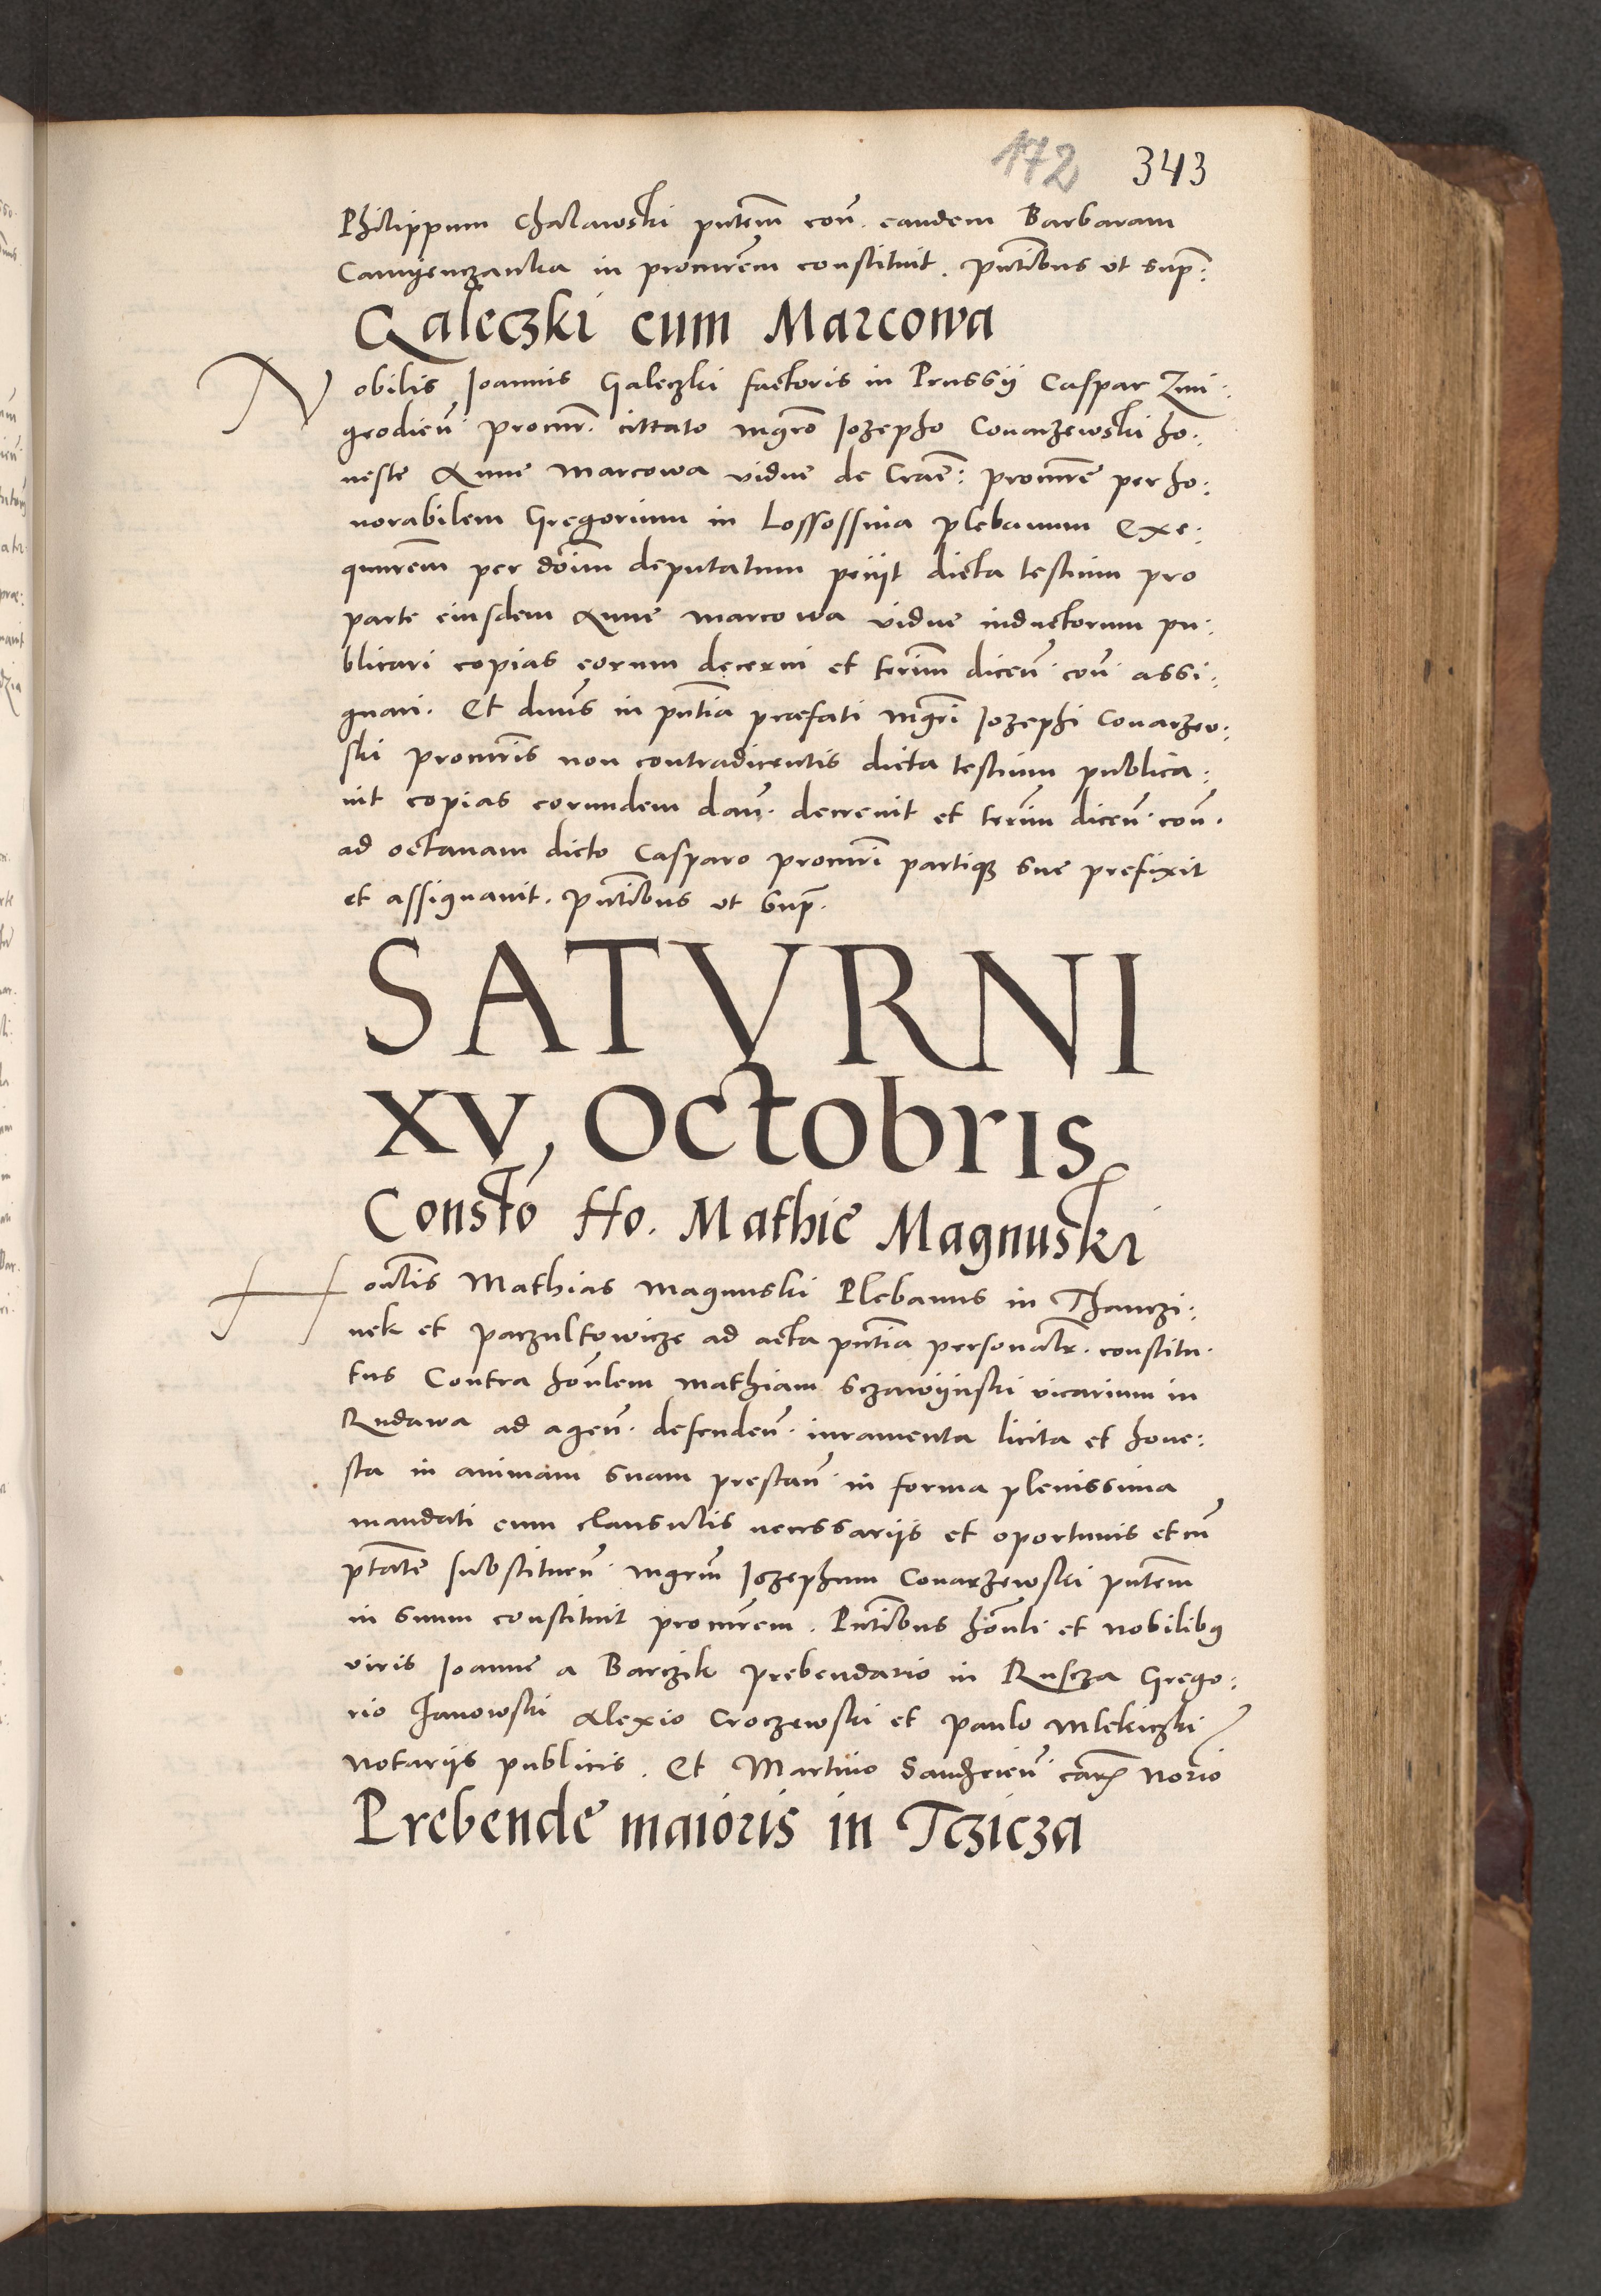 172 343
Philippum Chalawski pntem con. eandem Barbaram
Camyenczanka in procurem constituit. Pntibus vt supra:
Galeczki cum Marcowa
Nobilis Joannis Galeczki factoris in Prussij Caspar Zmi:
grodien. procur. cittato mgro Jozepho Conarzewski ho:
neste Anne Marcowa vidue de Crac: procure per ho:
norabilem Gregorium in Lossossina plebanum Exe:
qutorem per donum deputatum petijt dicta testium pro
parte eiusdem Anne Marcowa vidue inductorum pu:
blicari copias eorum decerni et terim dicen con assi:
gnari. Et dnus in pntia praefati mgri Jozephi Conarzew:
ski procuris non contradicentis dicta testium publica:
uit copias eorundem dan. decreuit et terim dicen. con.
ad octauam dicto Casparo procuri partique sue prefixit
et assignauit. Pntibus vt supra.
SATVRNI
XV, Octobris
Consto Ho. Mathie Magnuski
Honlis Mathias Magnuski Plebanus in Thanczi:
nek et Paczultowicze ad acta pntia personalr. constitu.
tus Contra honlem Mathiam Sczawijnski vicarium in
Rudawa ad agen. defenden. iuramenta licita et hone:
sta in animam suam prestan in forma plenissima
mandati cum clausulis necessarijs et oportunis et cu
ptate substituen. mgrum Jozephum Conarzewski pntem
in suum constituit procurem. Pntibus honli et nobilibus
viris Joanne a Barczik prebendario in Ruscza Grego:
rio Janowski Alexio Croczewski et Paulo Mlekiczki
Notarijs publicis. Et Martino Sandecien. Norio
Prebende maioris in Tczicza